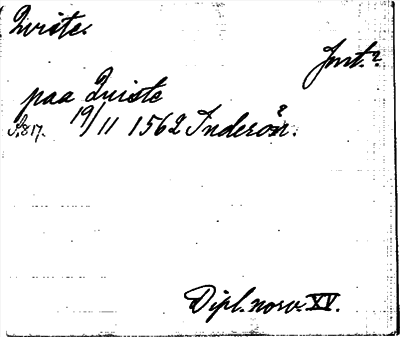 Qviste.
Jnt.?
paa Qviste
S.817. 19/11 1562 Inderøn?.
Dipl. norv. XV.